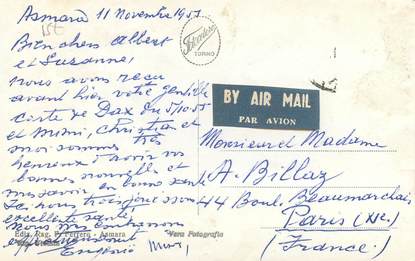 Asmara 11 Novembre 1957
15f
Bien chers Albert
et Suzanne,
nous avons reçu
avant hier votre gentille
carte de Dax du 5/10.57
et Mimi, Christian et
moi sommes très
heureux d'avoir vos
bonnes nouvelles et
vous savoir en bonne santé
Ici, nous
excellente santé.
Nous vous
Eugenio Mimi,
Fotocelere
TORINO
BY AIR MAIL
PAR AVION
Monsieur et Madame
A. Billaz
44 Boul. Beaumarchais
Paris (XIe.)
(France.)
Ediz. Rag. P. Ferrero - Asmara
Vera Fotografia